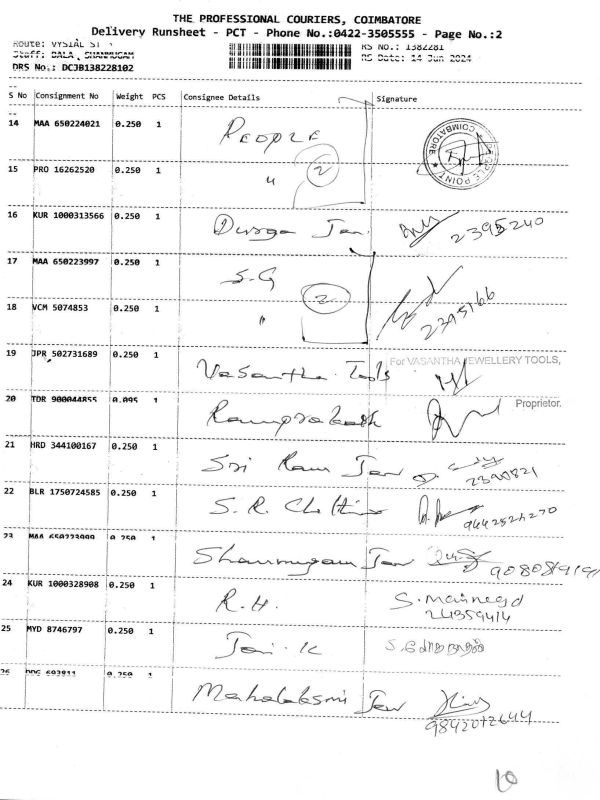 THE PROFESSIONAL COURIERS, COIMBATORE
Delivery Runsheet - PCT - Phone No.:0422-3505555 - Page No.:2
Route: VYSIAL ST
Staff: BALA , SHANMUGAM
RS No.: 1382281
DRS No.: DCJB138228102
RS Date: 14 Jun 2024
S No Consignment No Weight PCS Consignee Details Signature
14 MAA 650224021 0.250 1 PEOPLE
COIMBATORE ★ PEOPLE POINT
15 PRO 16262520 0.250 1 " 2
16 KUR 1000313566 0.250 1 Durga Jew 2395240
17 MAA 650223997 0.250 1 S.G
18 VCM 5074853 0.250 1 " 2 2395166
19 JPR 502731689 0.250 1 Vasantha Tools For VASANTHA JEWELLERY TOOLS,
20 TDR 900044855 0.095 1 Ramprakash Proprietor.
21 HRD 344100167 0.250 1 Sri Ram Jew 2390821
22 BLR 1750724585 0.250 1 S.R. Chettiar
23 MAA 650223999 0.250 1 Shanmugam Jew
24 KUR 1000328908 0.250 1 R.H.
25 MYD 8746797 0.250 1 Jai.K
26 0.250 1 Mahalaksmi Jew 9842072644